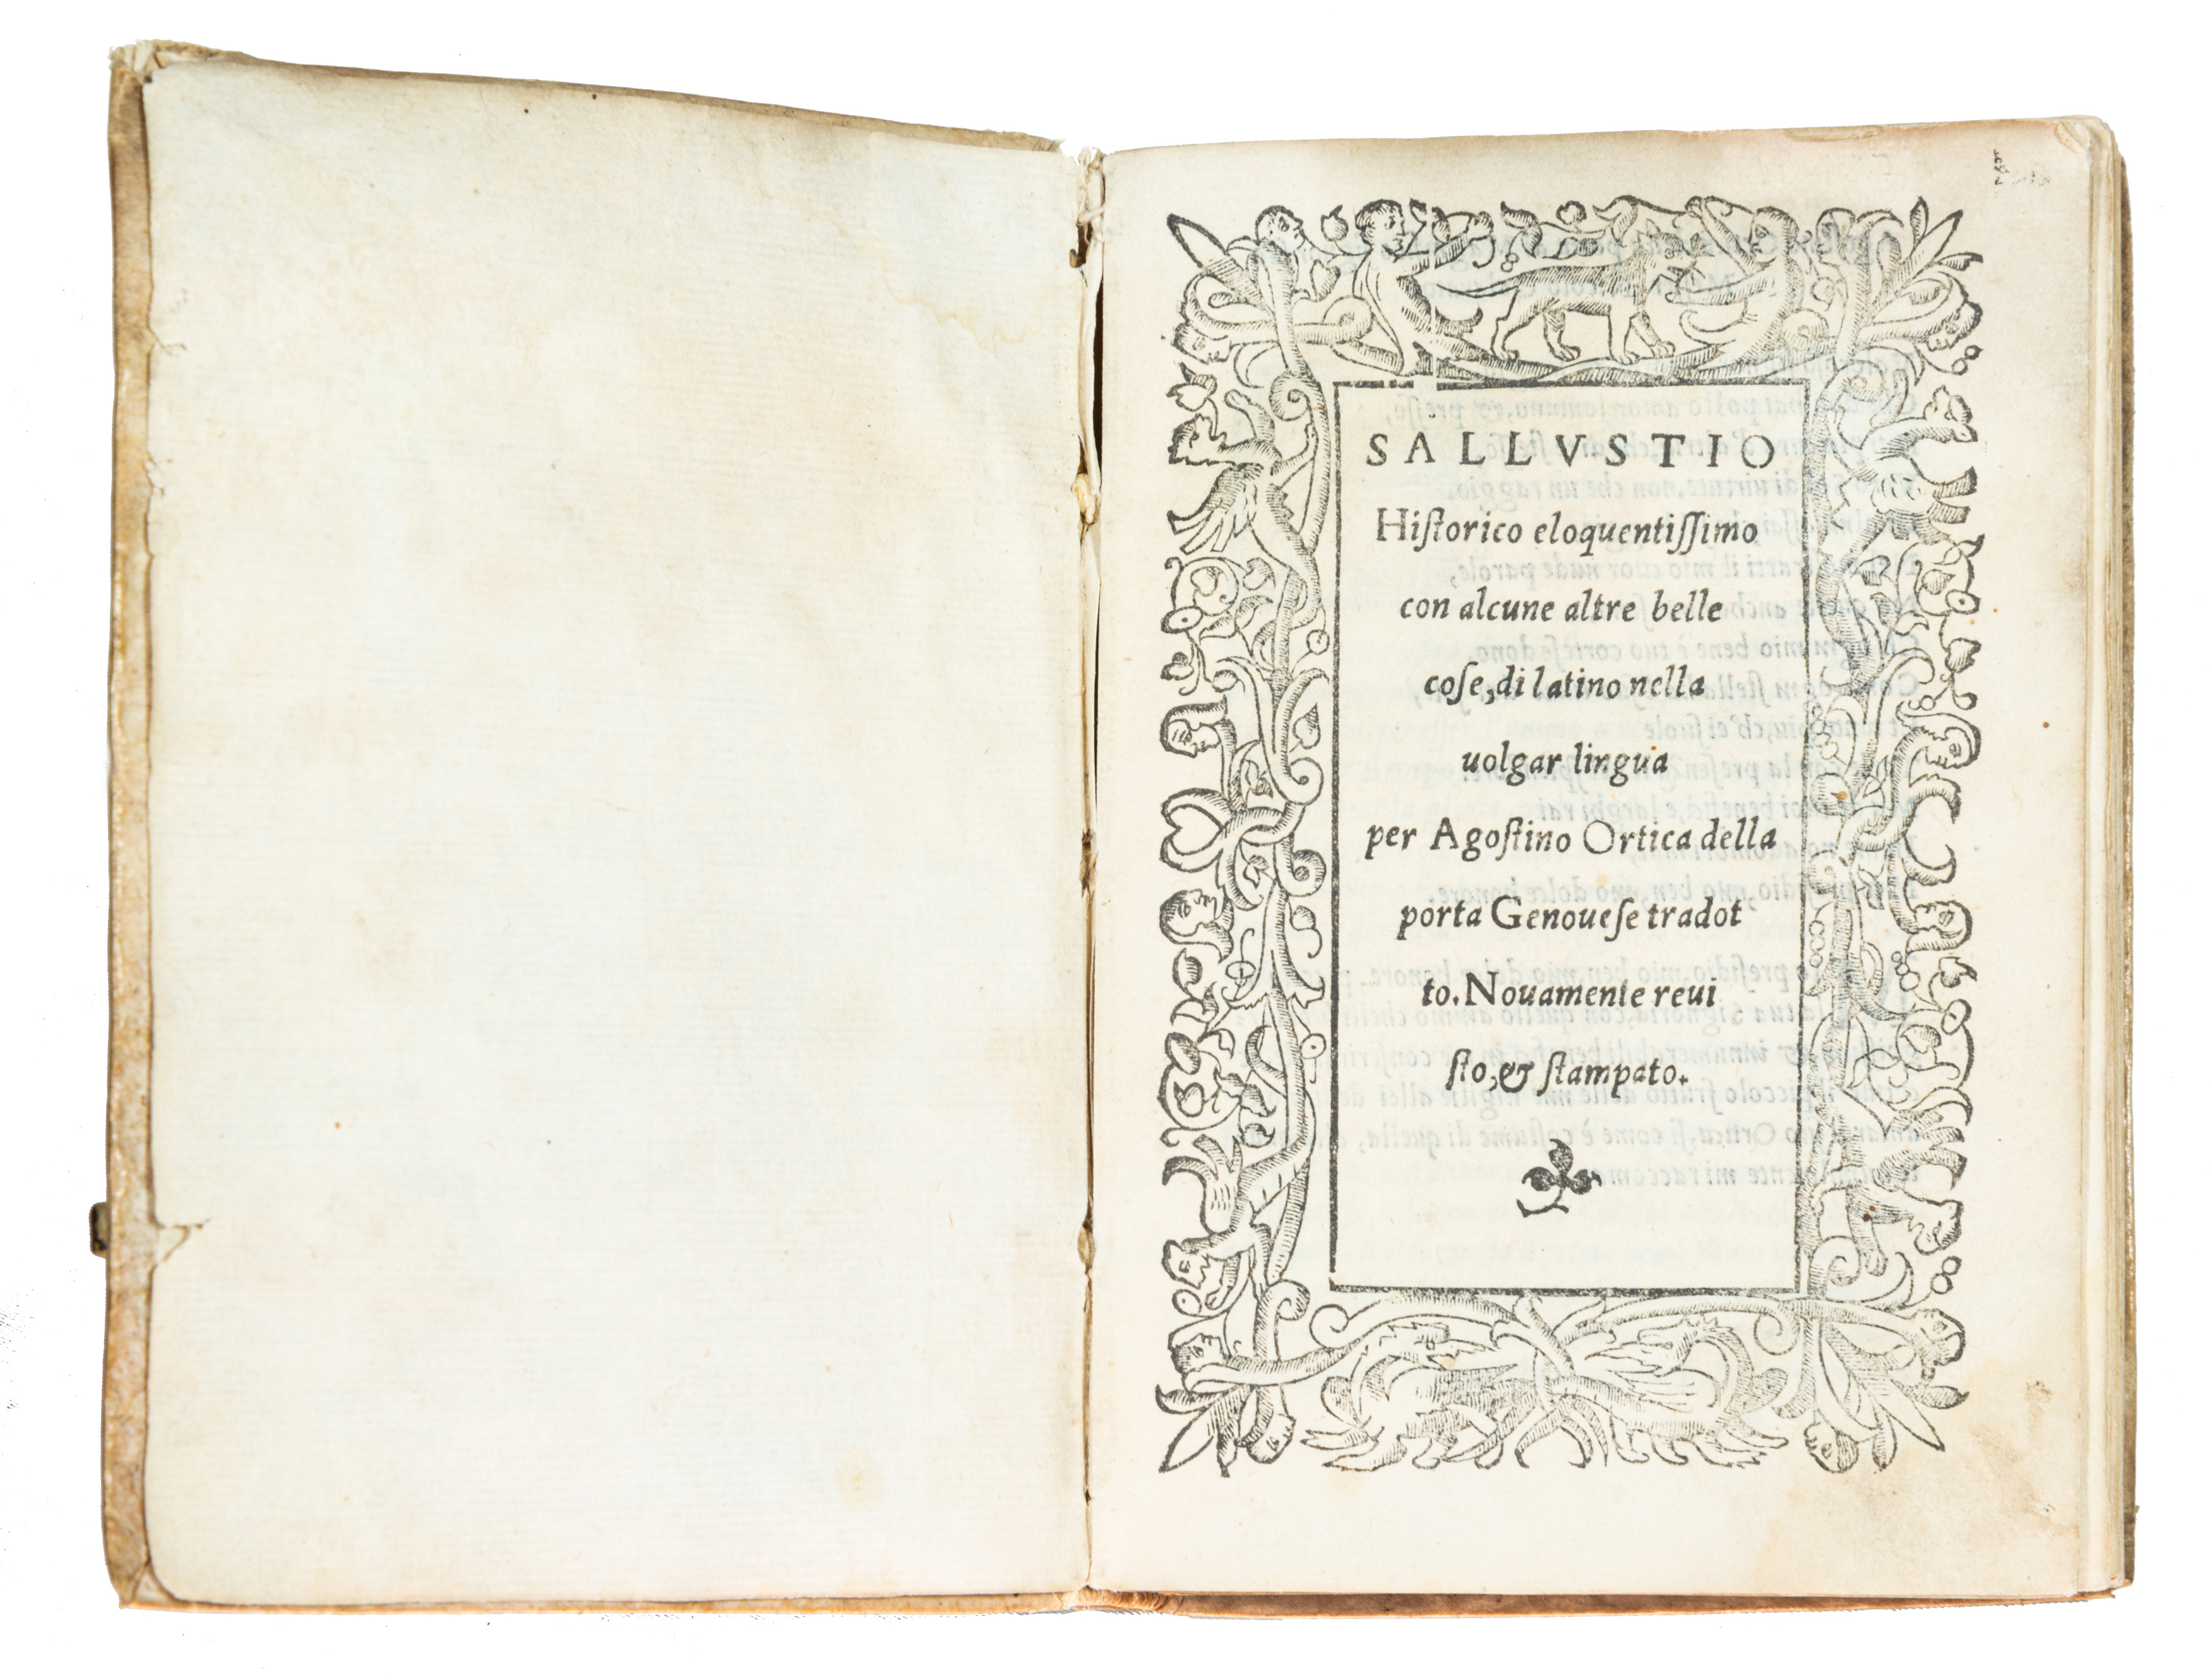 SALLVSTIO
Hiſtorico eloquentiſſimo
con alcune altre belle
coſe, di latino nella
uolgar lingua
per Agoſtino Ortica della
porta Genoueſe tradot
to. Nouamente reui
ſto, & ſtampato.